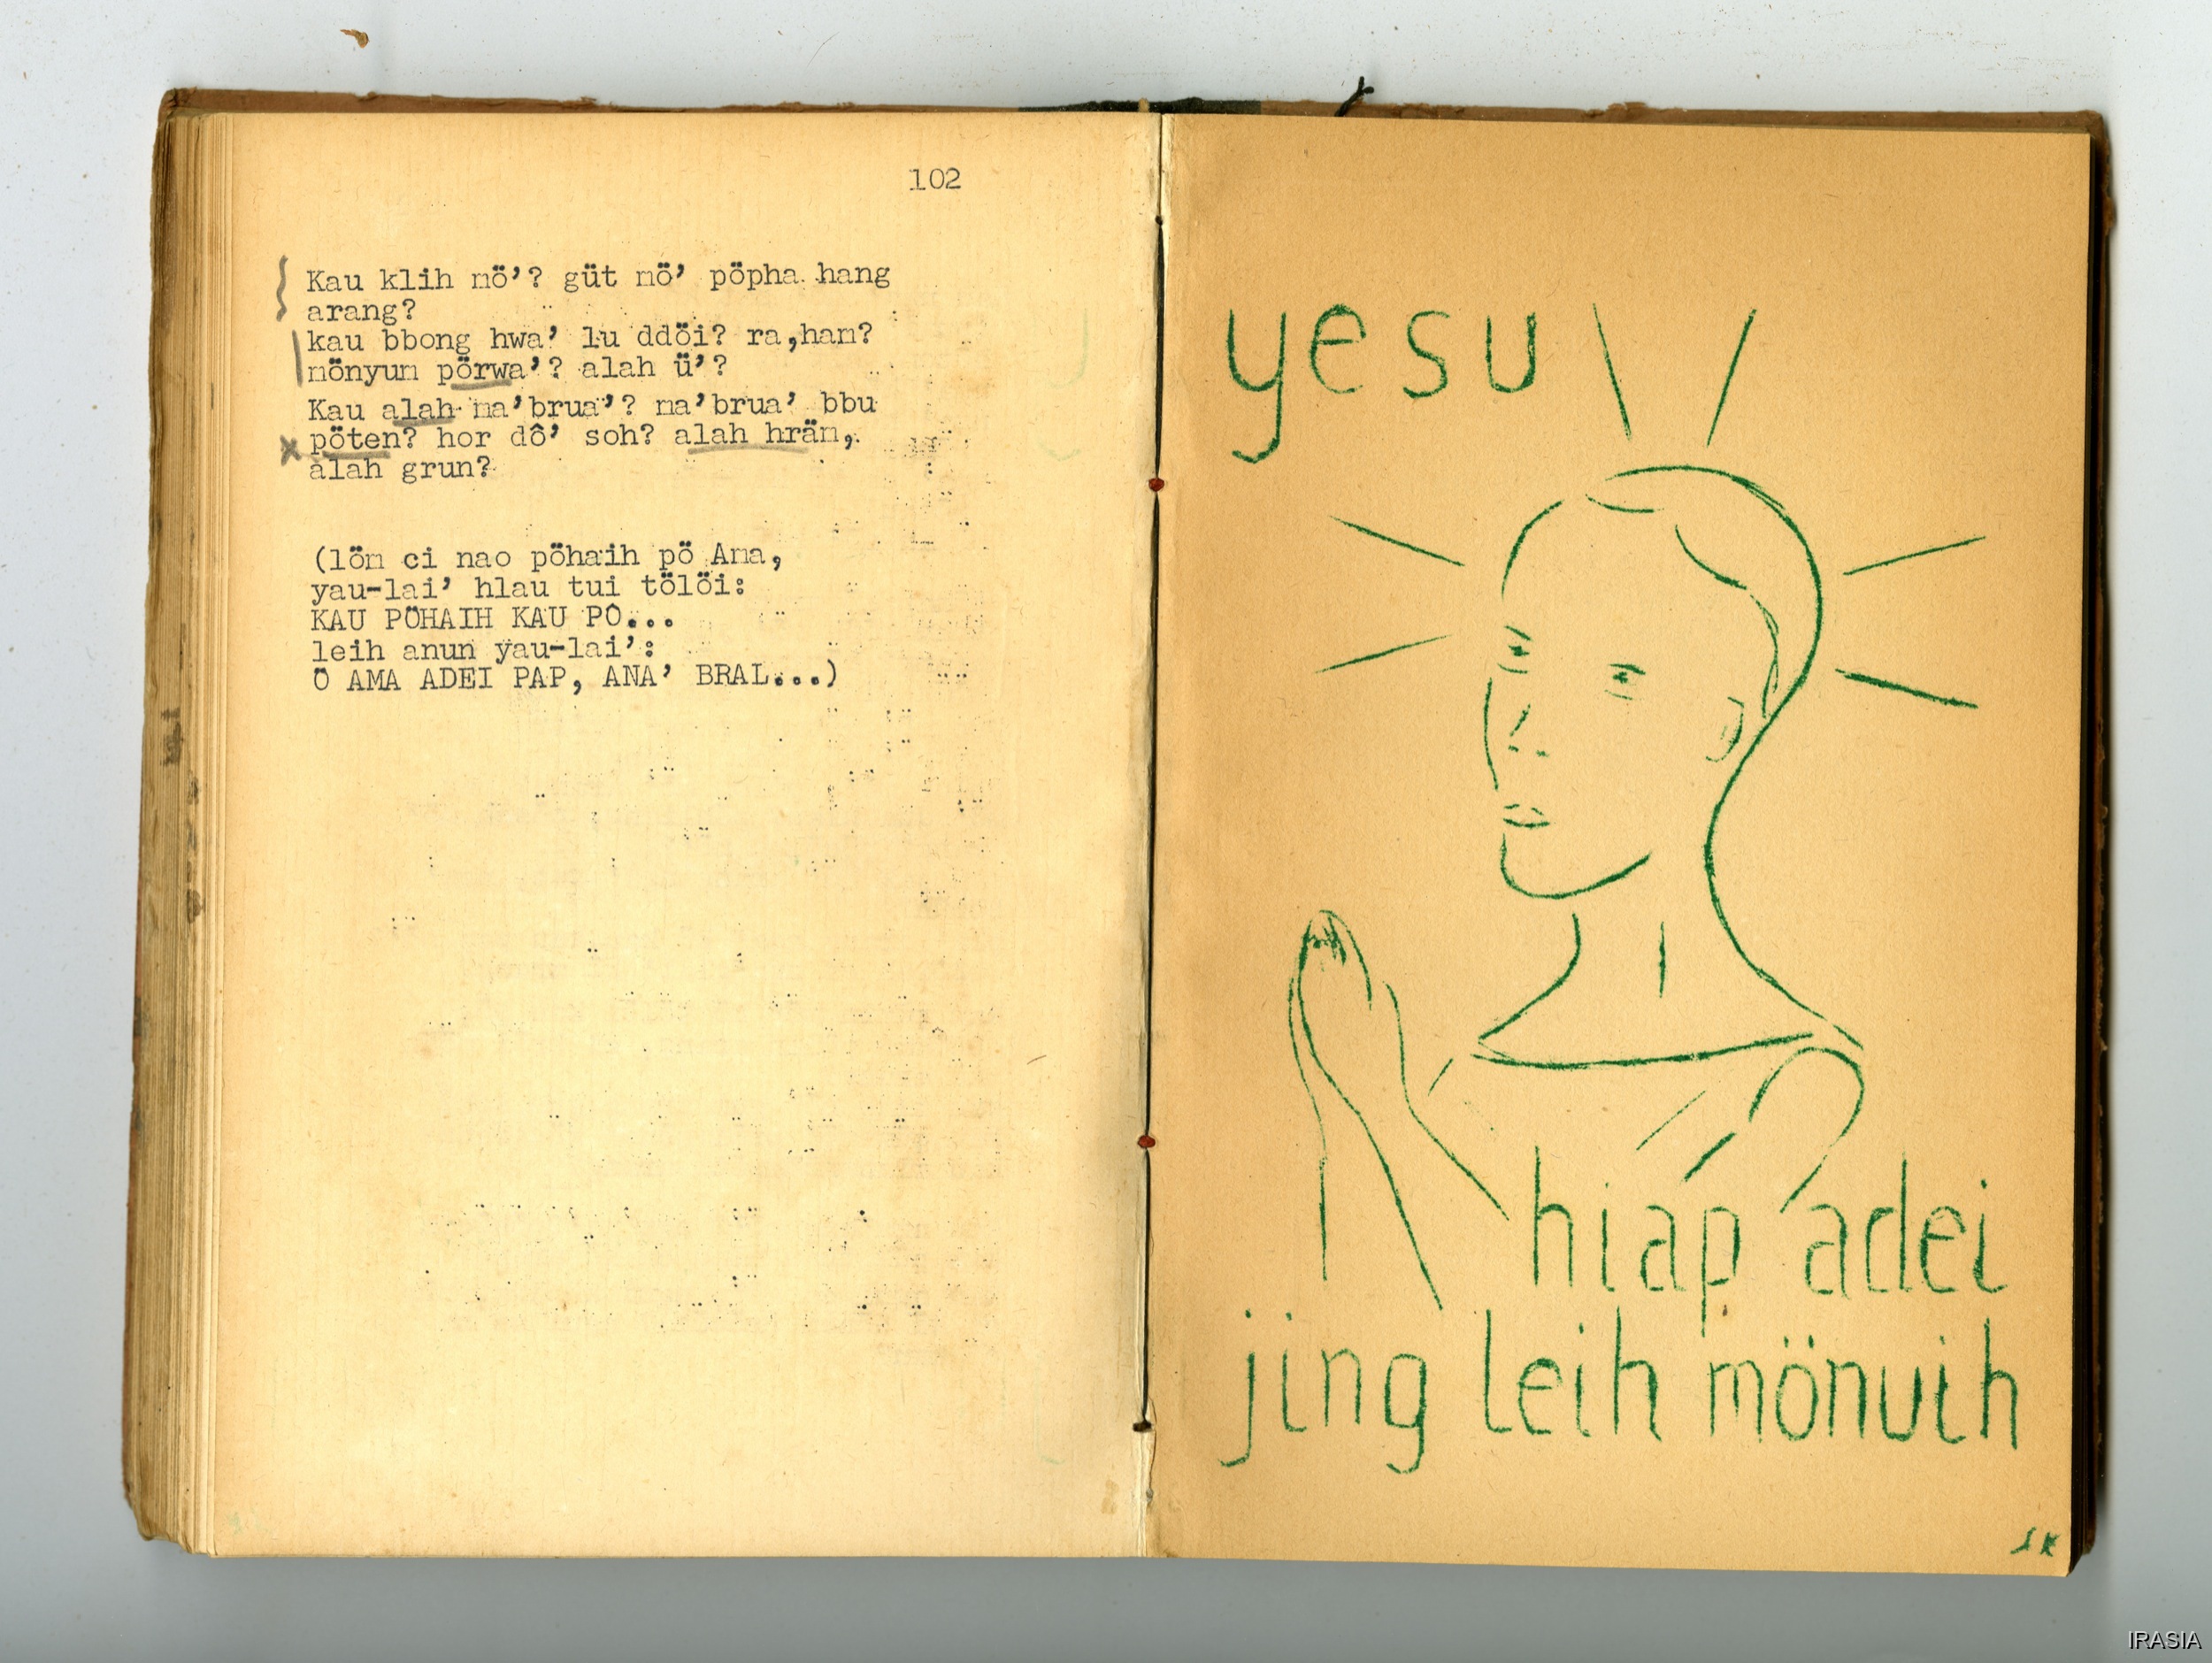 102
Kau klih mö’? güt mö’ pöpha hang
arang?
kau bbong hwa’ lu ddöi? ra,ham?
mönyum pörwa’? alah ü’?
Kau alah ma’brua’? ma’brua’ bbu
pöten? hor dô’ soh? alah hräm,
alah grun?
(löm ci nao pöhaih pö Ama,
yau-lai’ hlau tui tölöi:
KAU PÖHAIH KAU PO...
leih anun yau-lai’:
Ö AMA ADEI PAP, ANA’ BRAL...)
yesu
hiap adei
jing leih mönuih
SK
IRASIA